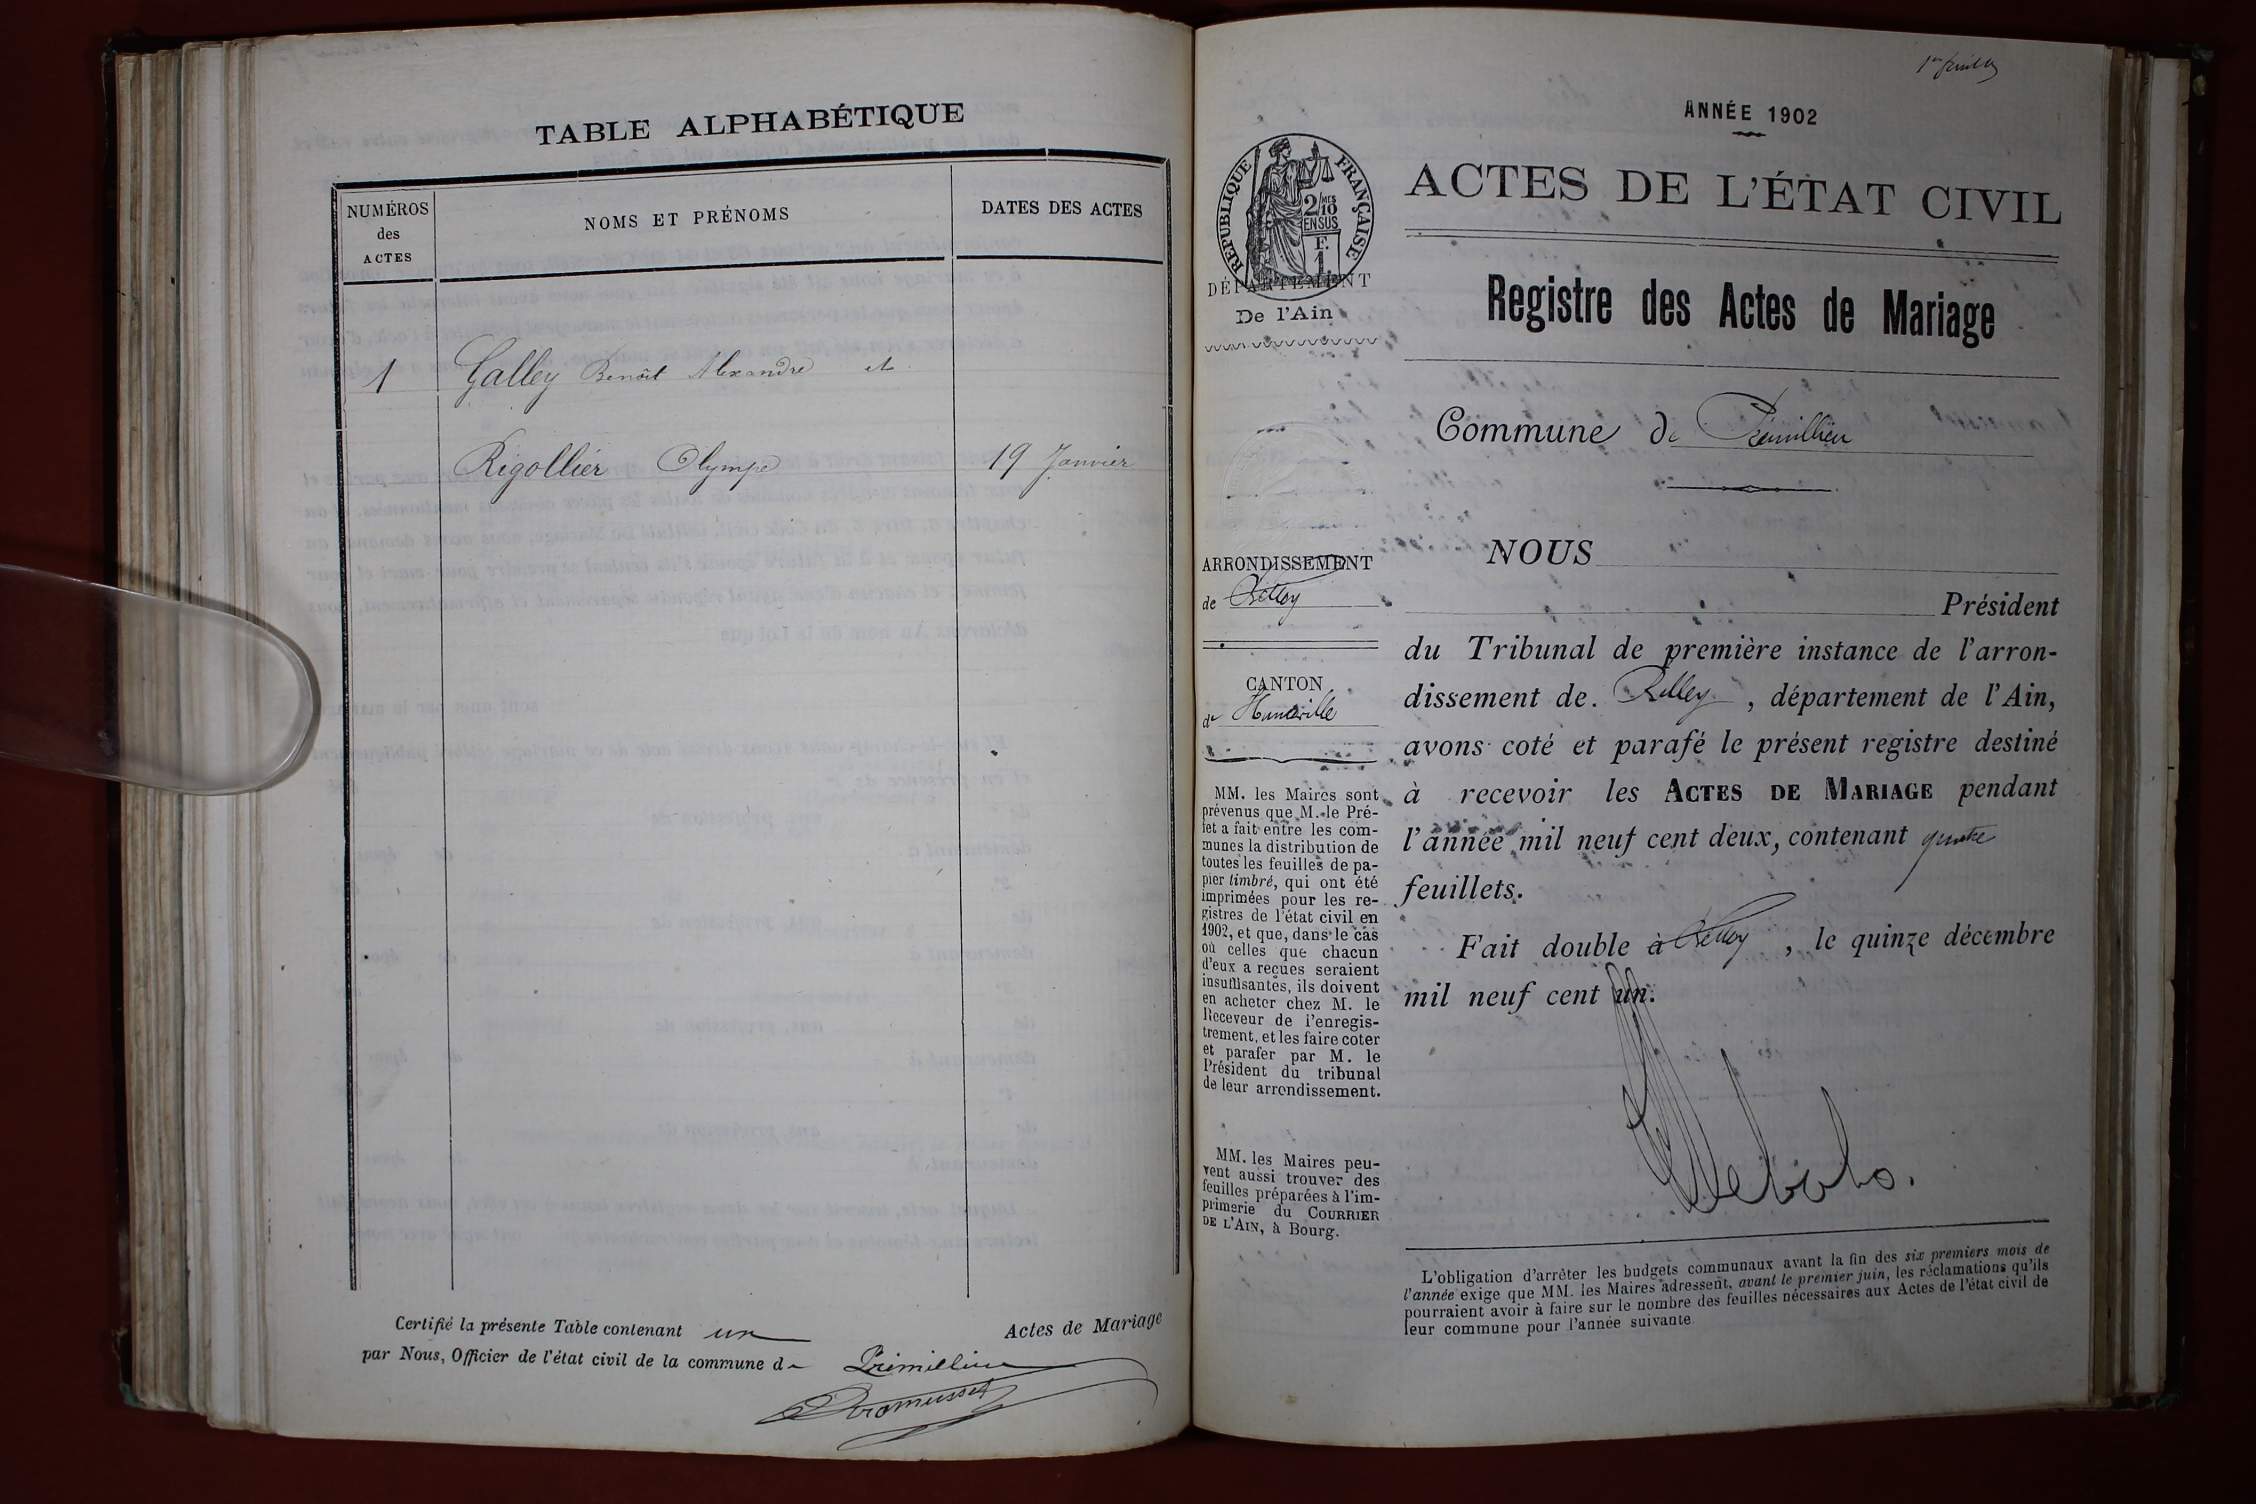 TABLE ALPHABÉTIQUE
NUMÉROS
des
ACTES
NOMS ET PRÉNOMS
DATES DES ACTES
1
Galley Benoît Alexandre et
Rigollier Olympe
19 Janvier
Certifié la présente Table contenant un Actes de Mariage
par Nous, Officier de l'état civil de la commune de Prémillieu
1er feuillet
ANNÉE 1902
RÉPUBLIQUE FRANÇAISE
2/10 MES
EN SUS
F.
1.
DÉPARTEMENT
De l'Ain
ACTES DE L'ÉTAT CIVIL
Registre des Actes de Mariage
Commune de Prémillieu
ARRONDISSEMENT
de Belley
CANTON
de Hauteville
MM. les Maires sont
prévenus que M. le Pré-
fet a fait entre les com-
munes la distribution de
toutes les feuilles de pa-
pier timbré, qui ont été
imprimées pour les re-
gistres de l'état civil en
1902, et que, dans le cas
où celles que chacun
d'eux a reçues seraient
insuffisantes, ils doivent
en acheter chez M. le
Receveur de l'enregis-
trement, et les faire coter
et parafer par M. le
Président du tribunal
de leur arrondissement.
MM. les Maires peu-
vent aussi trouver des
feuilles préparées à l'im-
primerie du COURRIER
DE L'AIN, à Bourg.
NOUS
Président
du Tribunal de première instance de l'arron-
dissement de Belley, département de l'Ain,
avons coté et parafé le présent registre destiné
à recevoir les ACTES DE MARIAGE pendant
l'année mil neuf cent deux, contenant quatre
feuillets.
Fait double à Belley, le quinze décembre
mil neuf cent un.
L'obligation d'arrêter les budgets communaux avant la fin des six premiers mois de
l'année exige que MM. les Maires adressent, avant le premier juin, les réclamations qu'ils
pourraient avoir à faire sur le nombre des feuilles nécessaires aux Actes de l'état civil de
leur commune pour l'année suivante.